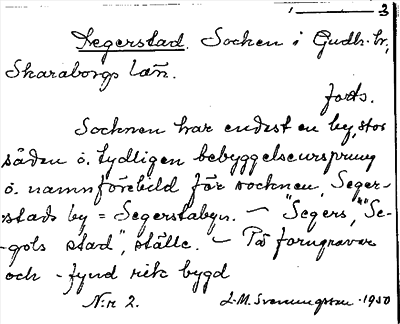 3
Segerstad. Socken i Gudh. hr,
Skaraborgs län.
forts.
Socknen har endast en by, stor
såden o. tydligen bebyggelseursprung
o. namnförebild för socknen, Seger-
stads by = Segerstabyn. — "Segers, "Se-
gols stad", ställe. — På forngravar
och - fynd rik bygd
N:r 2. J. M. Svenungsson - 1950